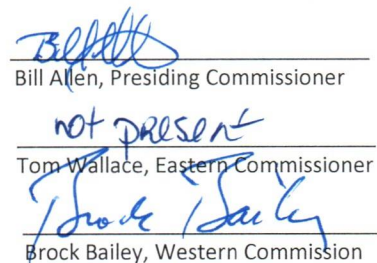 Bill Allen
Bill Allen, Presiding Commissioner
not present
Tom Wallace, Eastern Commissioner
Brock Bailey
Brock Bailey, Western Commission